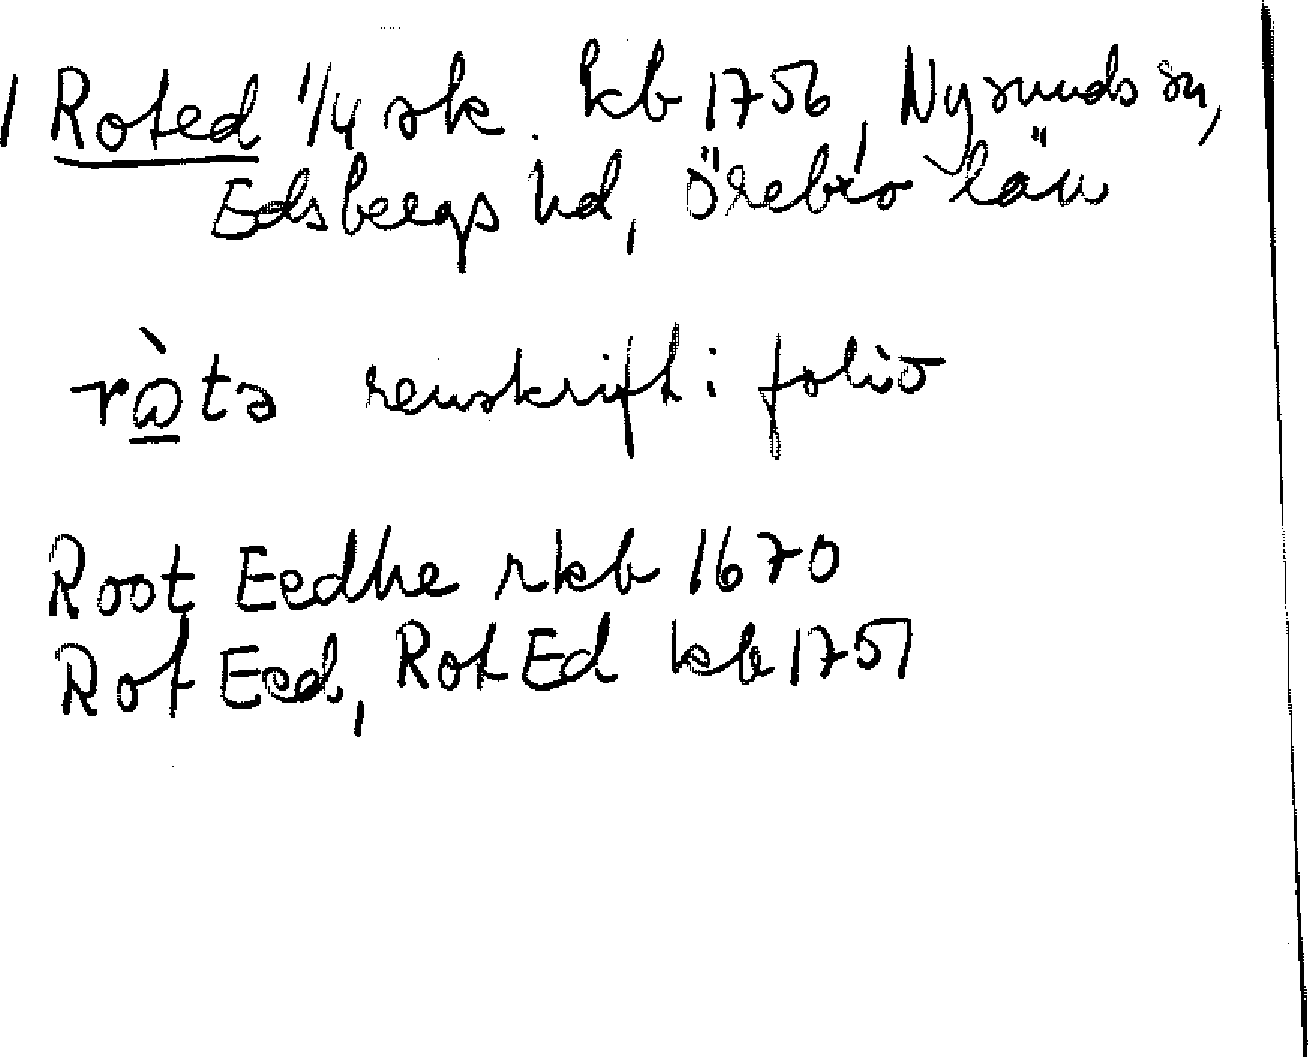 1 Roted 1/4 sk. kb 1756, Nysunds sn,
Edsbergs hd, Örebro län
ròtə renskrift i folio
Root Eedhe rkb 1670
Rot Eed, Rot Ed kb 1757